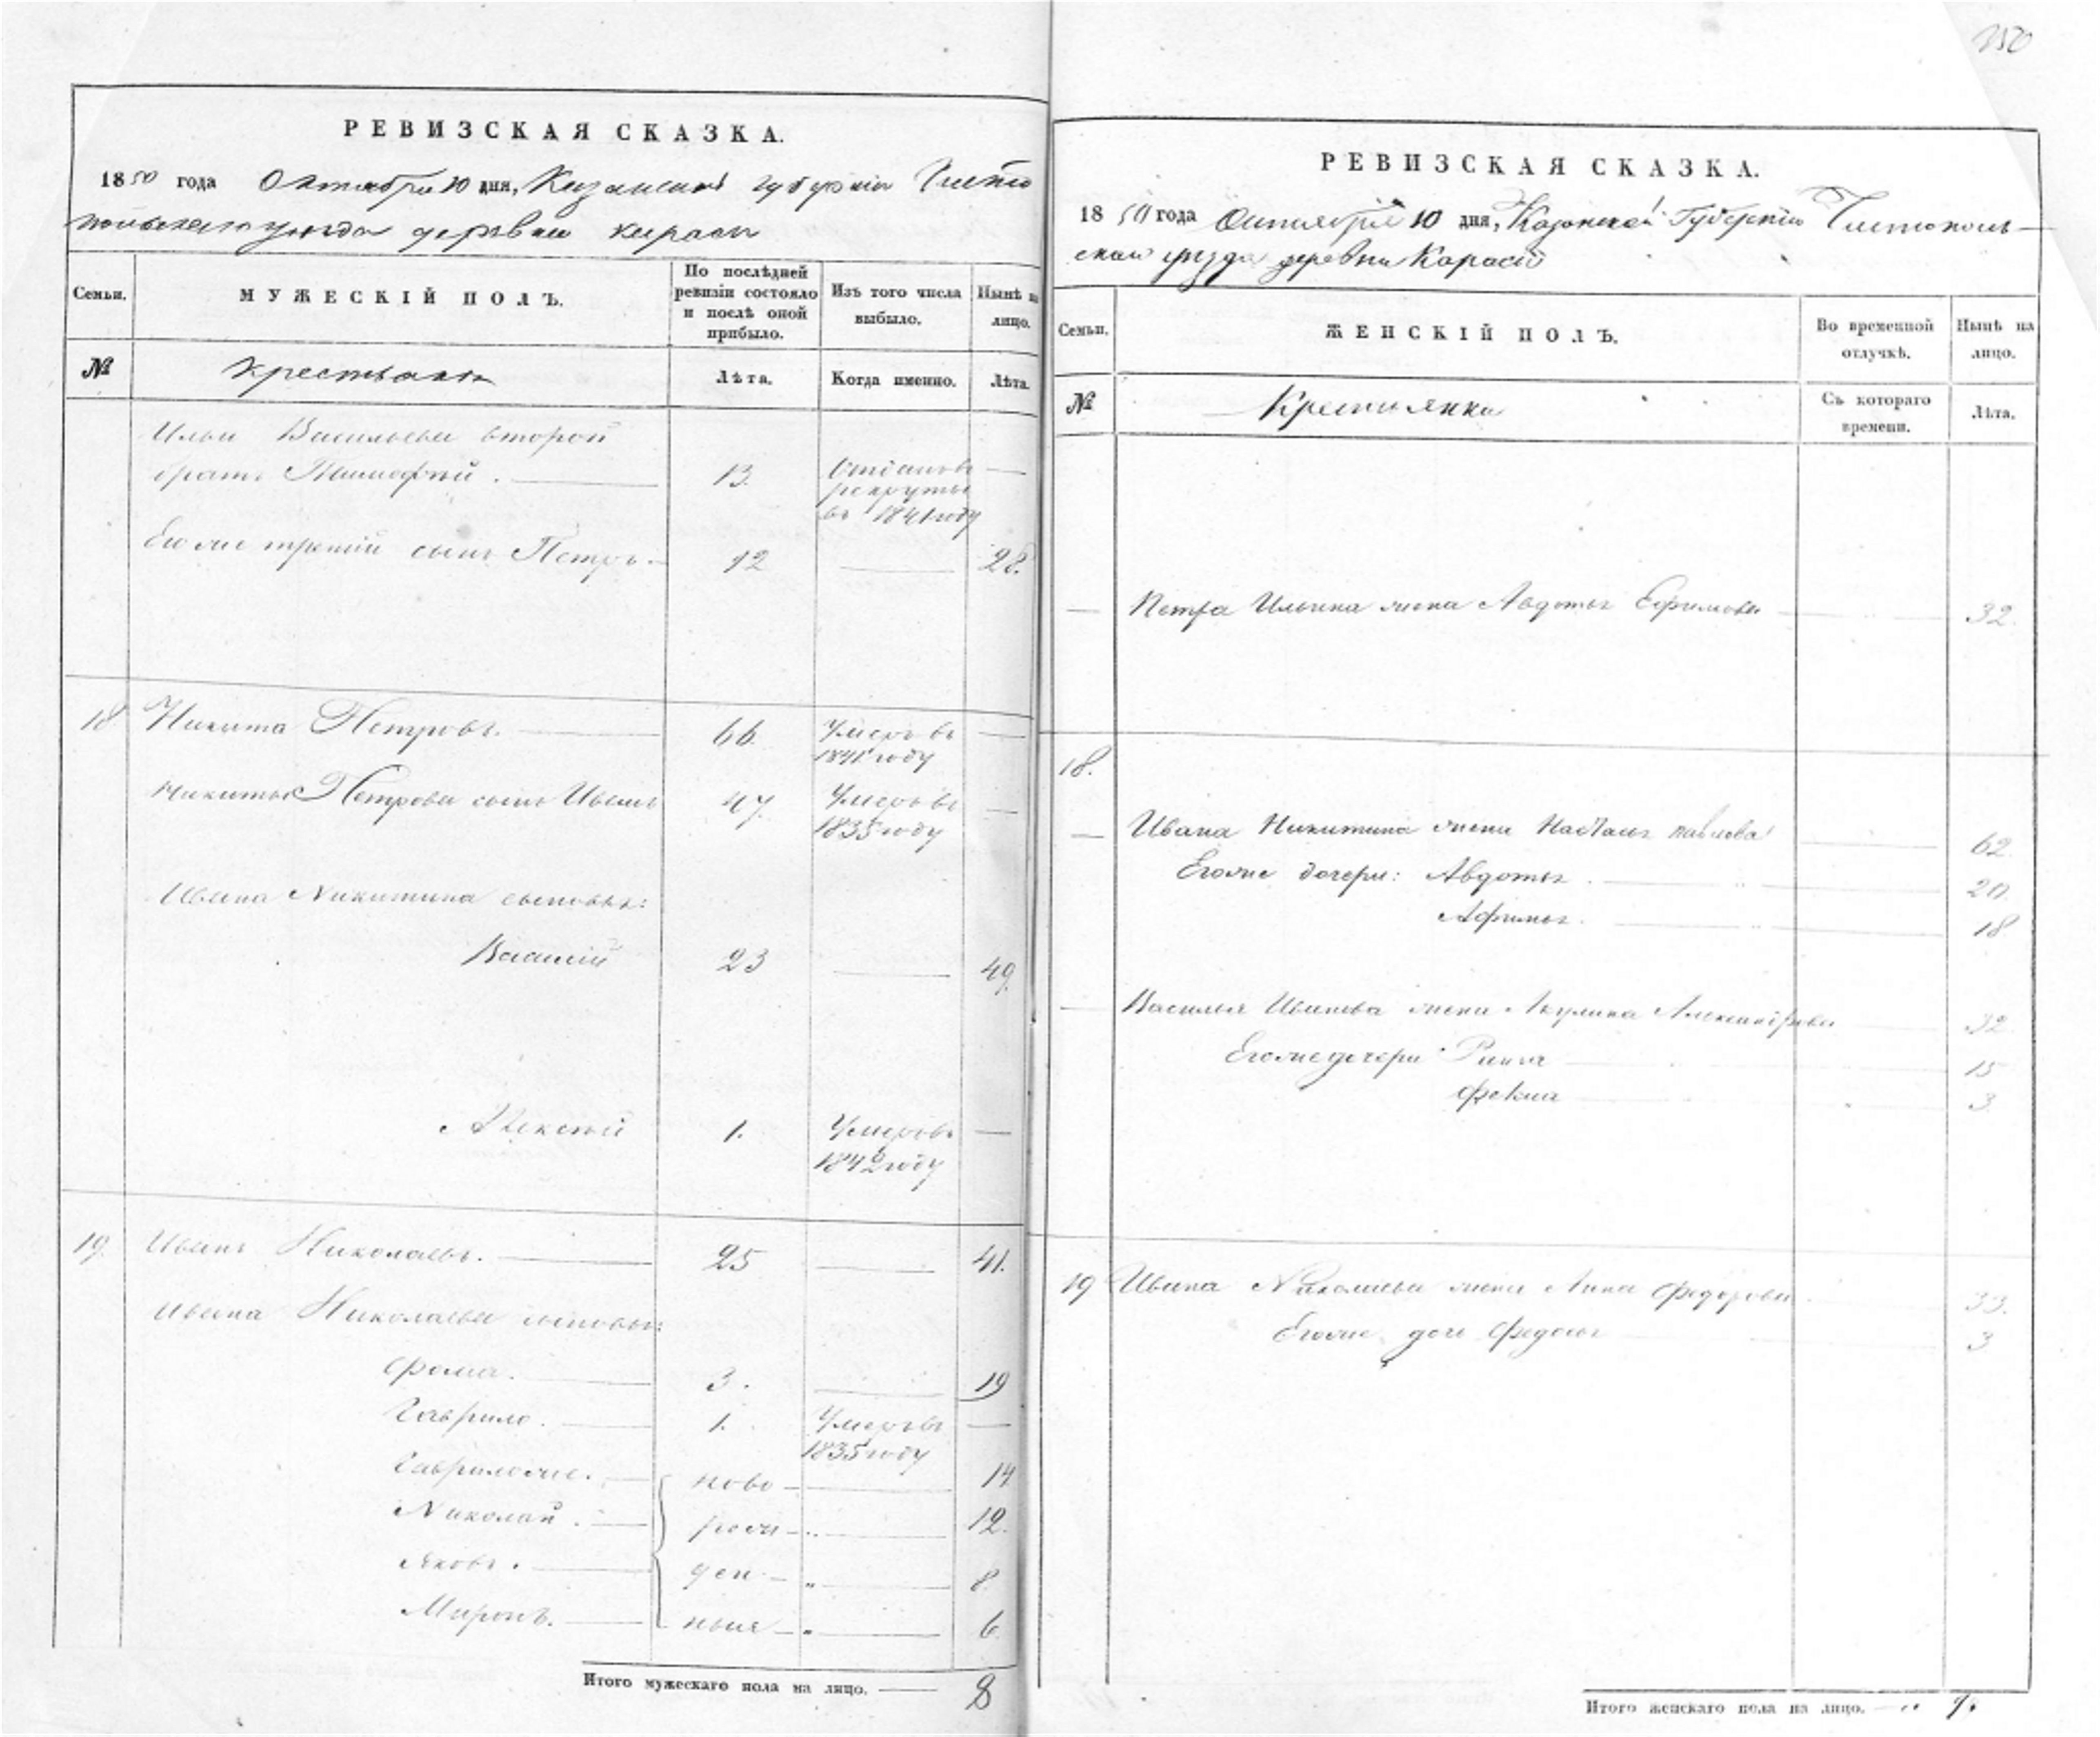 250
РЕВИЗСКАЯ СКАЗКА.
1850 года Октября 10 дня, Казанской губернии Чисто
польскаго уезда деревни Караси
Семьи.
МУЖЕСКІЙ ПОЛЪ.
По послѣдней ревизіи состояло и послѣ оной прибыло.
Изъ того числа выбыло.
Нынѣ на лицо.
№
Крестьяне
Лѣта.
Когда именно.
Лѣта.
Ильи Васильева второй
братъ Тимофей. 13. Отданъ въ рекруты въ 1841 году
Его же третій сынъ Петръ. 12 28.
18 Никита Петровъ. 66. Умеръ въ 1841 году
Никиты Петрова сынъ Иванъ 47. Умеръ въ 1835 году
Ивана Никитина сыновья:
Василій 23 49.
Алексей 1. Умеръ въ 1842 году
19. Иванъ Николаевъ. 25 41.
Ивана Николаева сыновья:
Фома. 3. 19
Гаврило. 1. Умеръ въ 1835 году
Гаврило же. ново 14
Николай. рож 12.
Яковъ. ден 8.
Миронъ. ные 6.
Итого мужескаго пола на лицо. 8
РЕВИЗСКАЯ СКАЗКА.
1850 года Октября 10 дня, Казанской Губернии Чистополь-
скаго уезда деревни Караси
Семьи.
ЖЕНСКІЙ ПОЛЪ.
Во временной отлучкѣ.
Нынѣ на лицо.
№
Крестьянки
Съ котораго времени.
Лѣта.
Петра Ильина жена Авдотья Ефимова 32.
18.
Ивана Никитина жена Настасья Павлова 62.
Его же дочери: Авдотья. 20.
Афимья. 18.
Василья Иванова жена Акулина Александрова 32.
Его же дочери 15
Фекла 3.
19 Ивана Николаева жена Анна Федорова 33.
Его же дочь Федосья 3
Итого женскаго пола на лицо. 9.